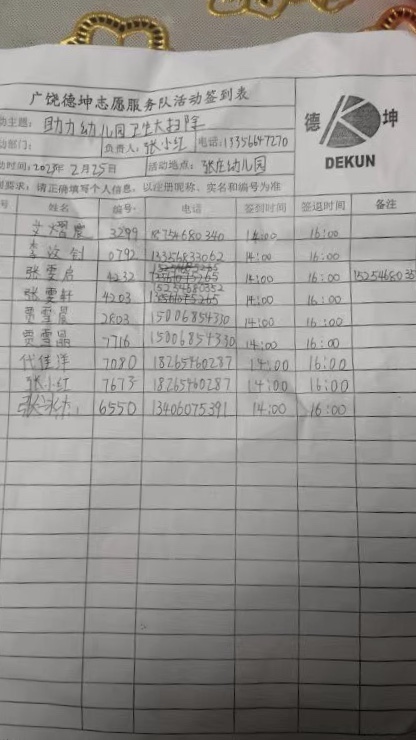 广饶德坤志愿服务队活动签到表
德 坤
DEKUN
动主题: 助力幼儿园卫生大扫除
动部门: 负责人: 张小红 电话: 13356647270
动时间: 2023年2月25日 活动地点: 张庄幼儿园
要求: 请正确填写个人信息, 以注册昵称、实名和编号为准
号 姓名 编号 电话 签到时间 签退时间 备注
3299 18754680340 14:00 16:00
0792 13356833062 14:00 16:00
张雯启 4232 14:00 16:00
张雯轩 4203 15254680352 14:00 16:00
贾雪晨 2803 15006854330 14:00 16:00
贾雪晶 7716 15006854330 14:00 16:00
代佳洋 7080 18265460287 14:00 16:00
张小红 7673 18265460287 14:00 16:00
6550 13406075391 14:00 16:00